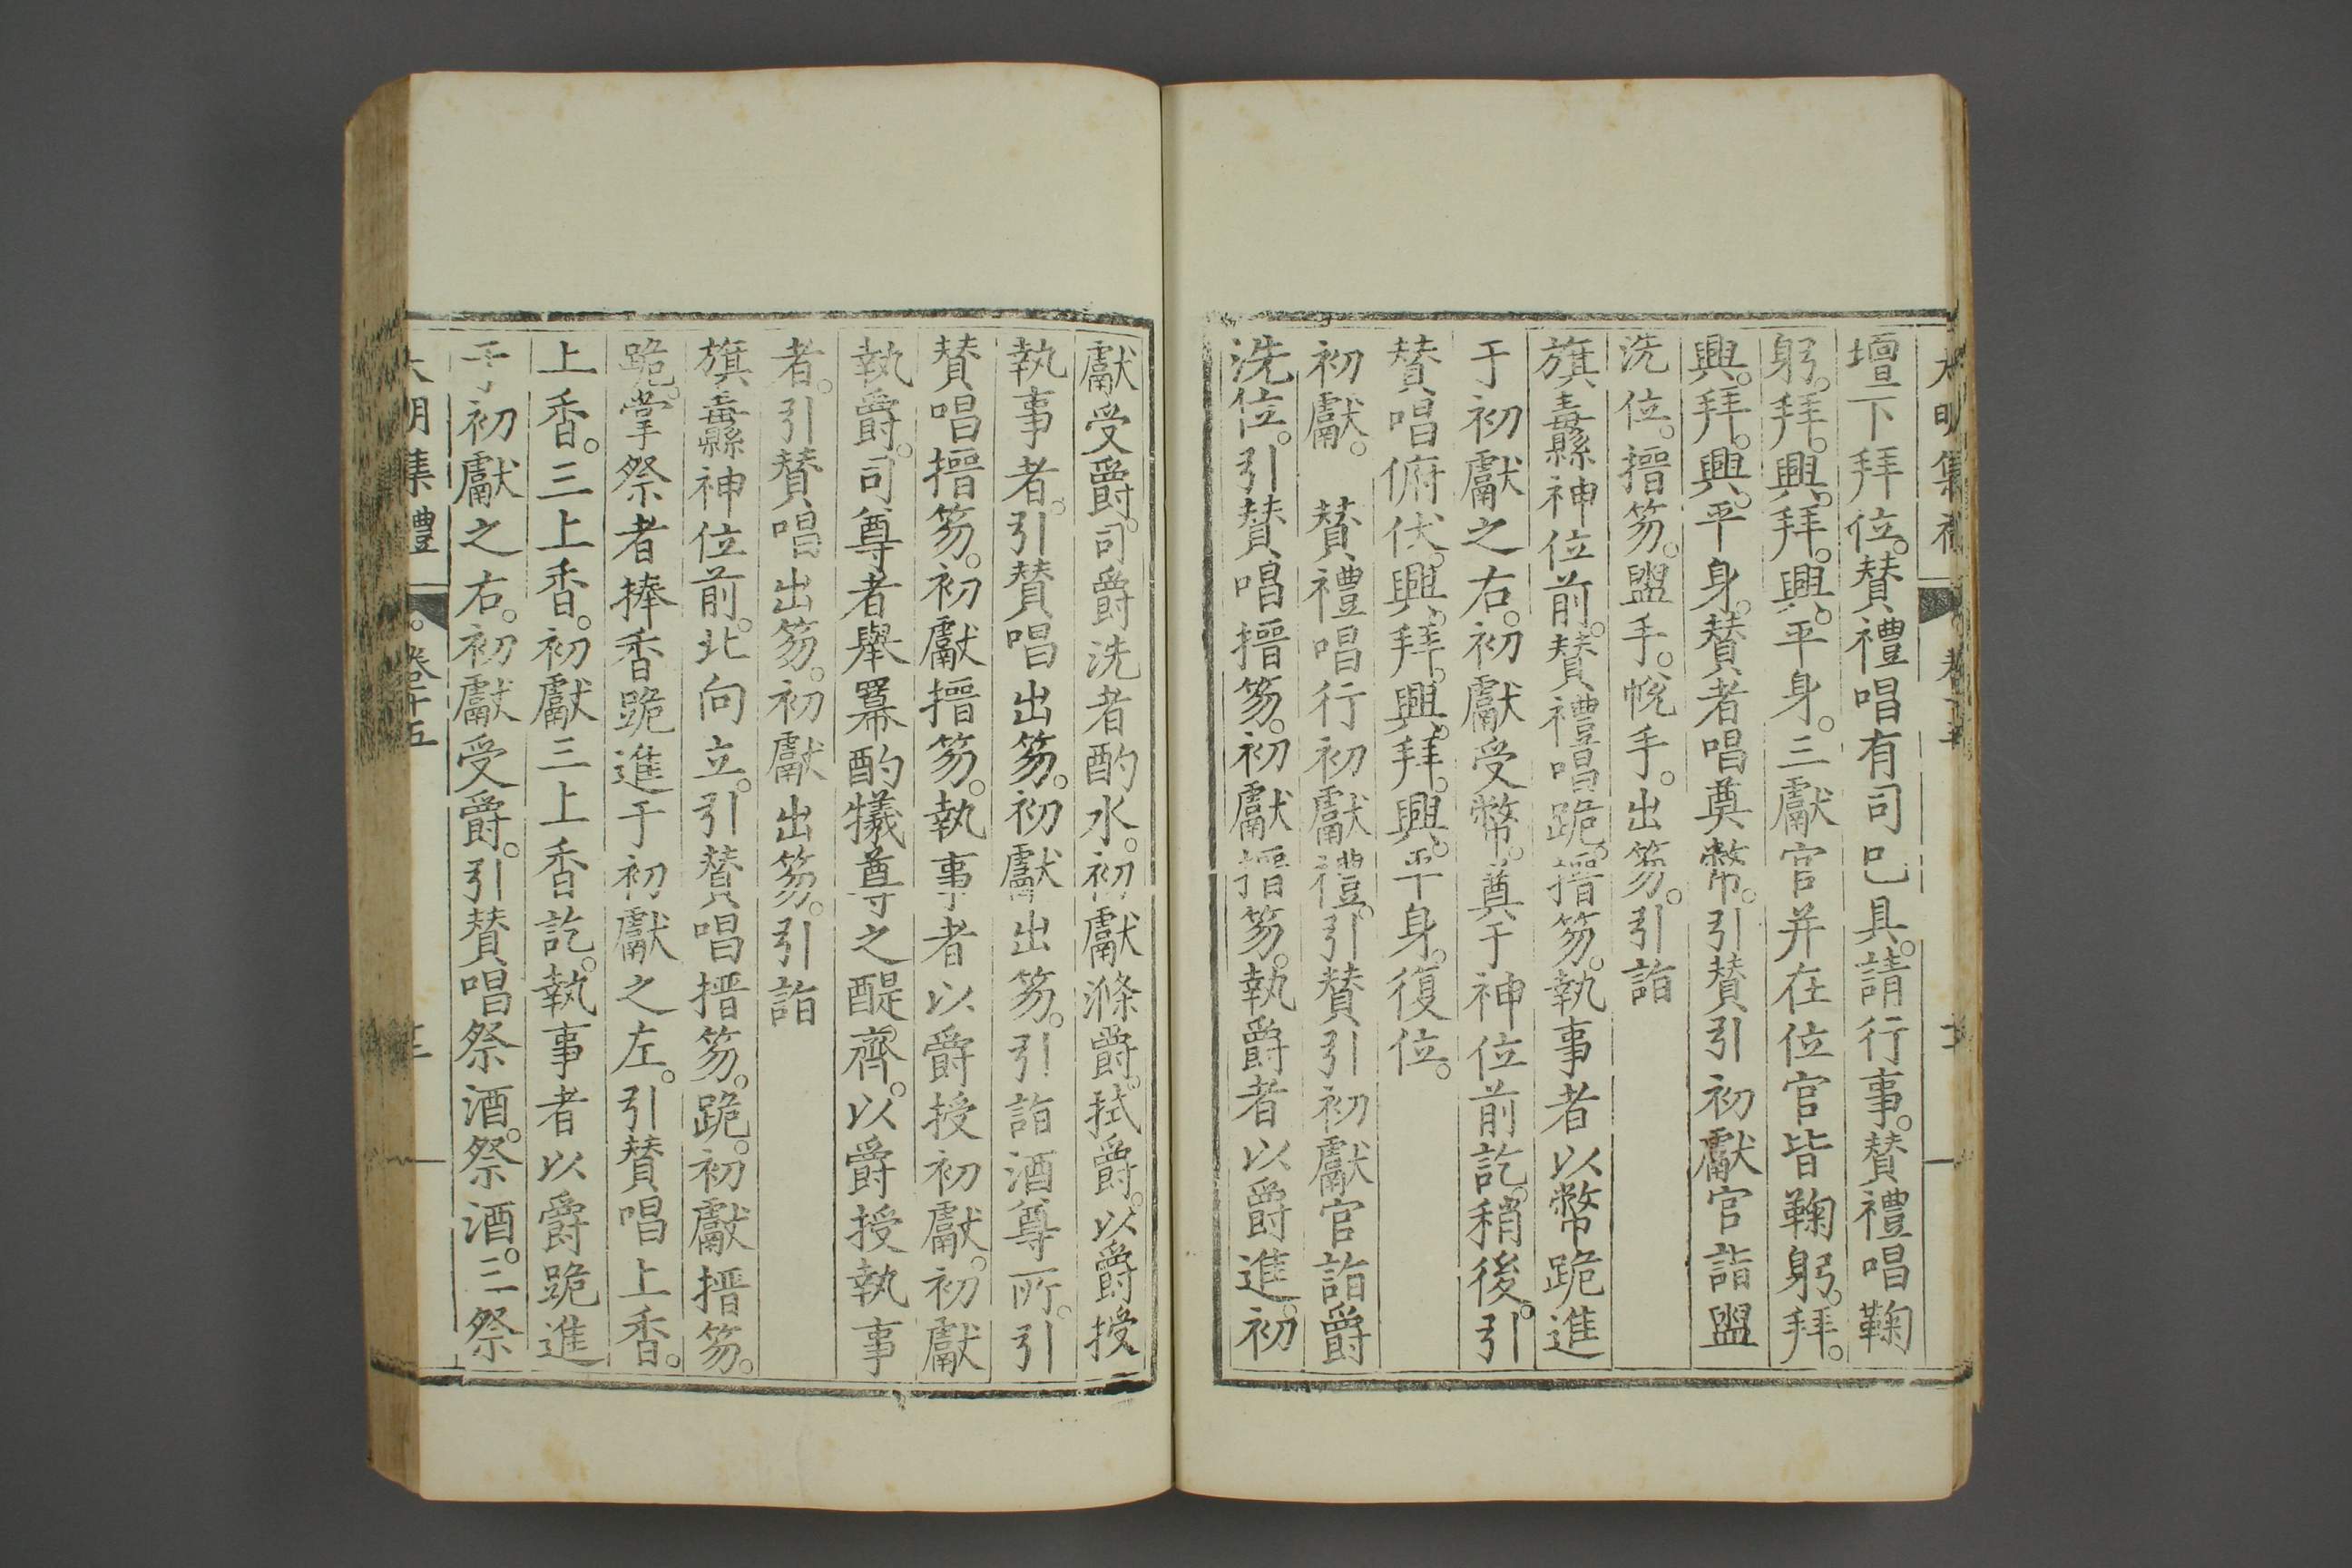 壇下拜位。賛禮唱有司巳具。請行事。賛禮唱鞠
躬。拜。興。拜。興。平身。三獻官并在位官皆鞠躬。拜。
興。拜。興。平身。賛者唱奠幣。引賛引初獻官詣盥
洗位。搢笏。盥手。帨手。出笏。引詣
旗纛神位前。賛禮唱跪。搢笏。執事者以幣跪進
于初獻之右。初獻受幣。奠于神位前訖。稍後。引
賛唱俯伏。興。拜。興。拜。興。平身。復位。
初獻。　賛禮唱行初獻禮。引賛引初獻官詣爵
洗位。引賛唱搢笏。初獻搢笏。執爵者以爵進。初
獻受爵。司爵洗者酌水。初獻滌爵。拭爵。以爵授
執事者。引賛唱出笏。初獻出笏。引詣酒尊所。引
賛唱搢笏。初獻搢笏。執事者以爵授初獻。初獻
執爵。司尊者舉羃酌犧尊之醍齊。以爵授執事
者。引賛唱出笏。初獻出笏。引詣
旗纛神位前。北向立。引賛唱搢笏。跪。初獻搢笏。
跪。掌祭者捧香跪進于初獻之左。引賛唱上香。
上香。三上香。初獻三上香訖。執事者以爵跪進
于初獻之右。初獻受爵。引賛唱祭酒。祭酒。三祭
大明集禮　卷三十五